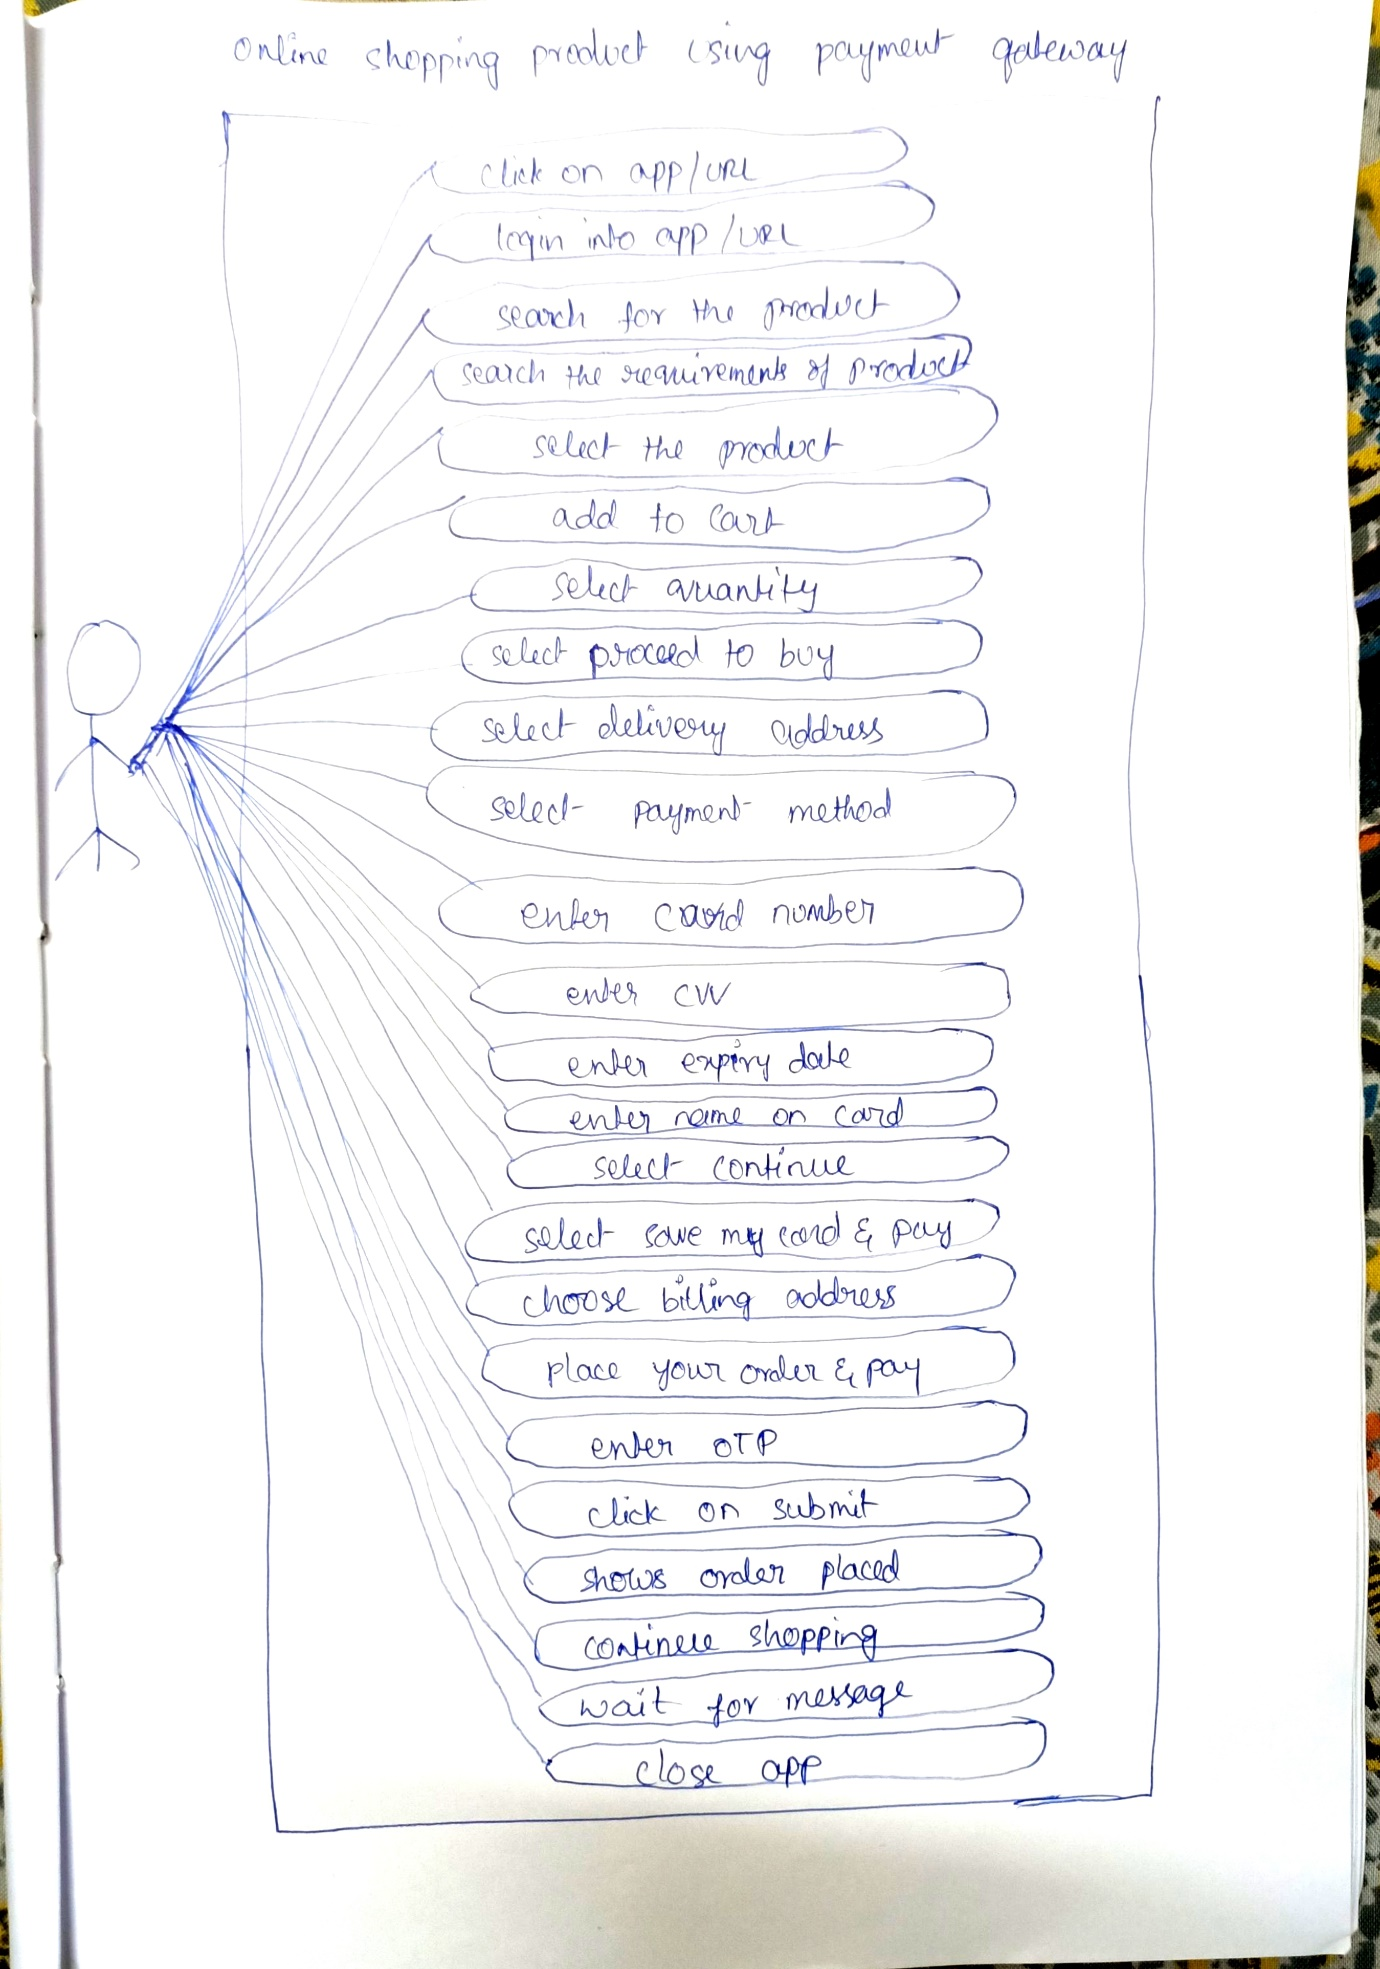 Online shopping product using payment gateway
click on app/URL
login into app/URL
search for the product
search the requirements of product
select the product
add to cart
select quantity
select proceed to buy
select delivery address
select payment method
enter card number
enter CVV
enter expiry date
enter name on card
select continue
select save my card & pay
choose billing address
place your order & pay
enter OTP
click on submit
shows order placed
continue shopping
wait for message
close app